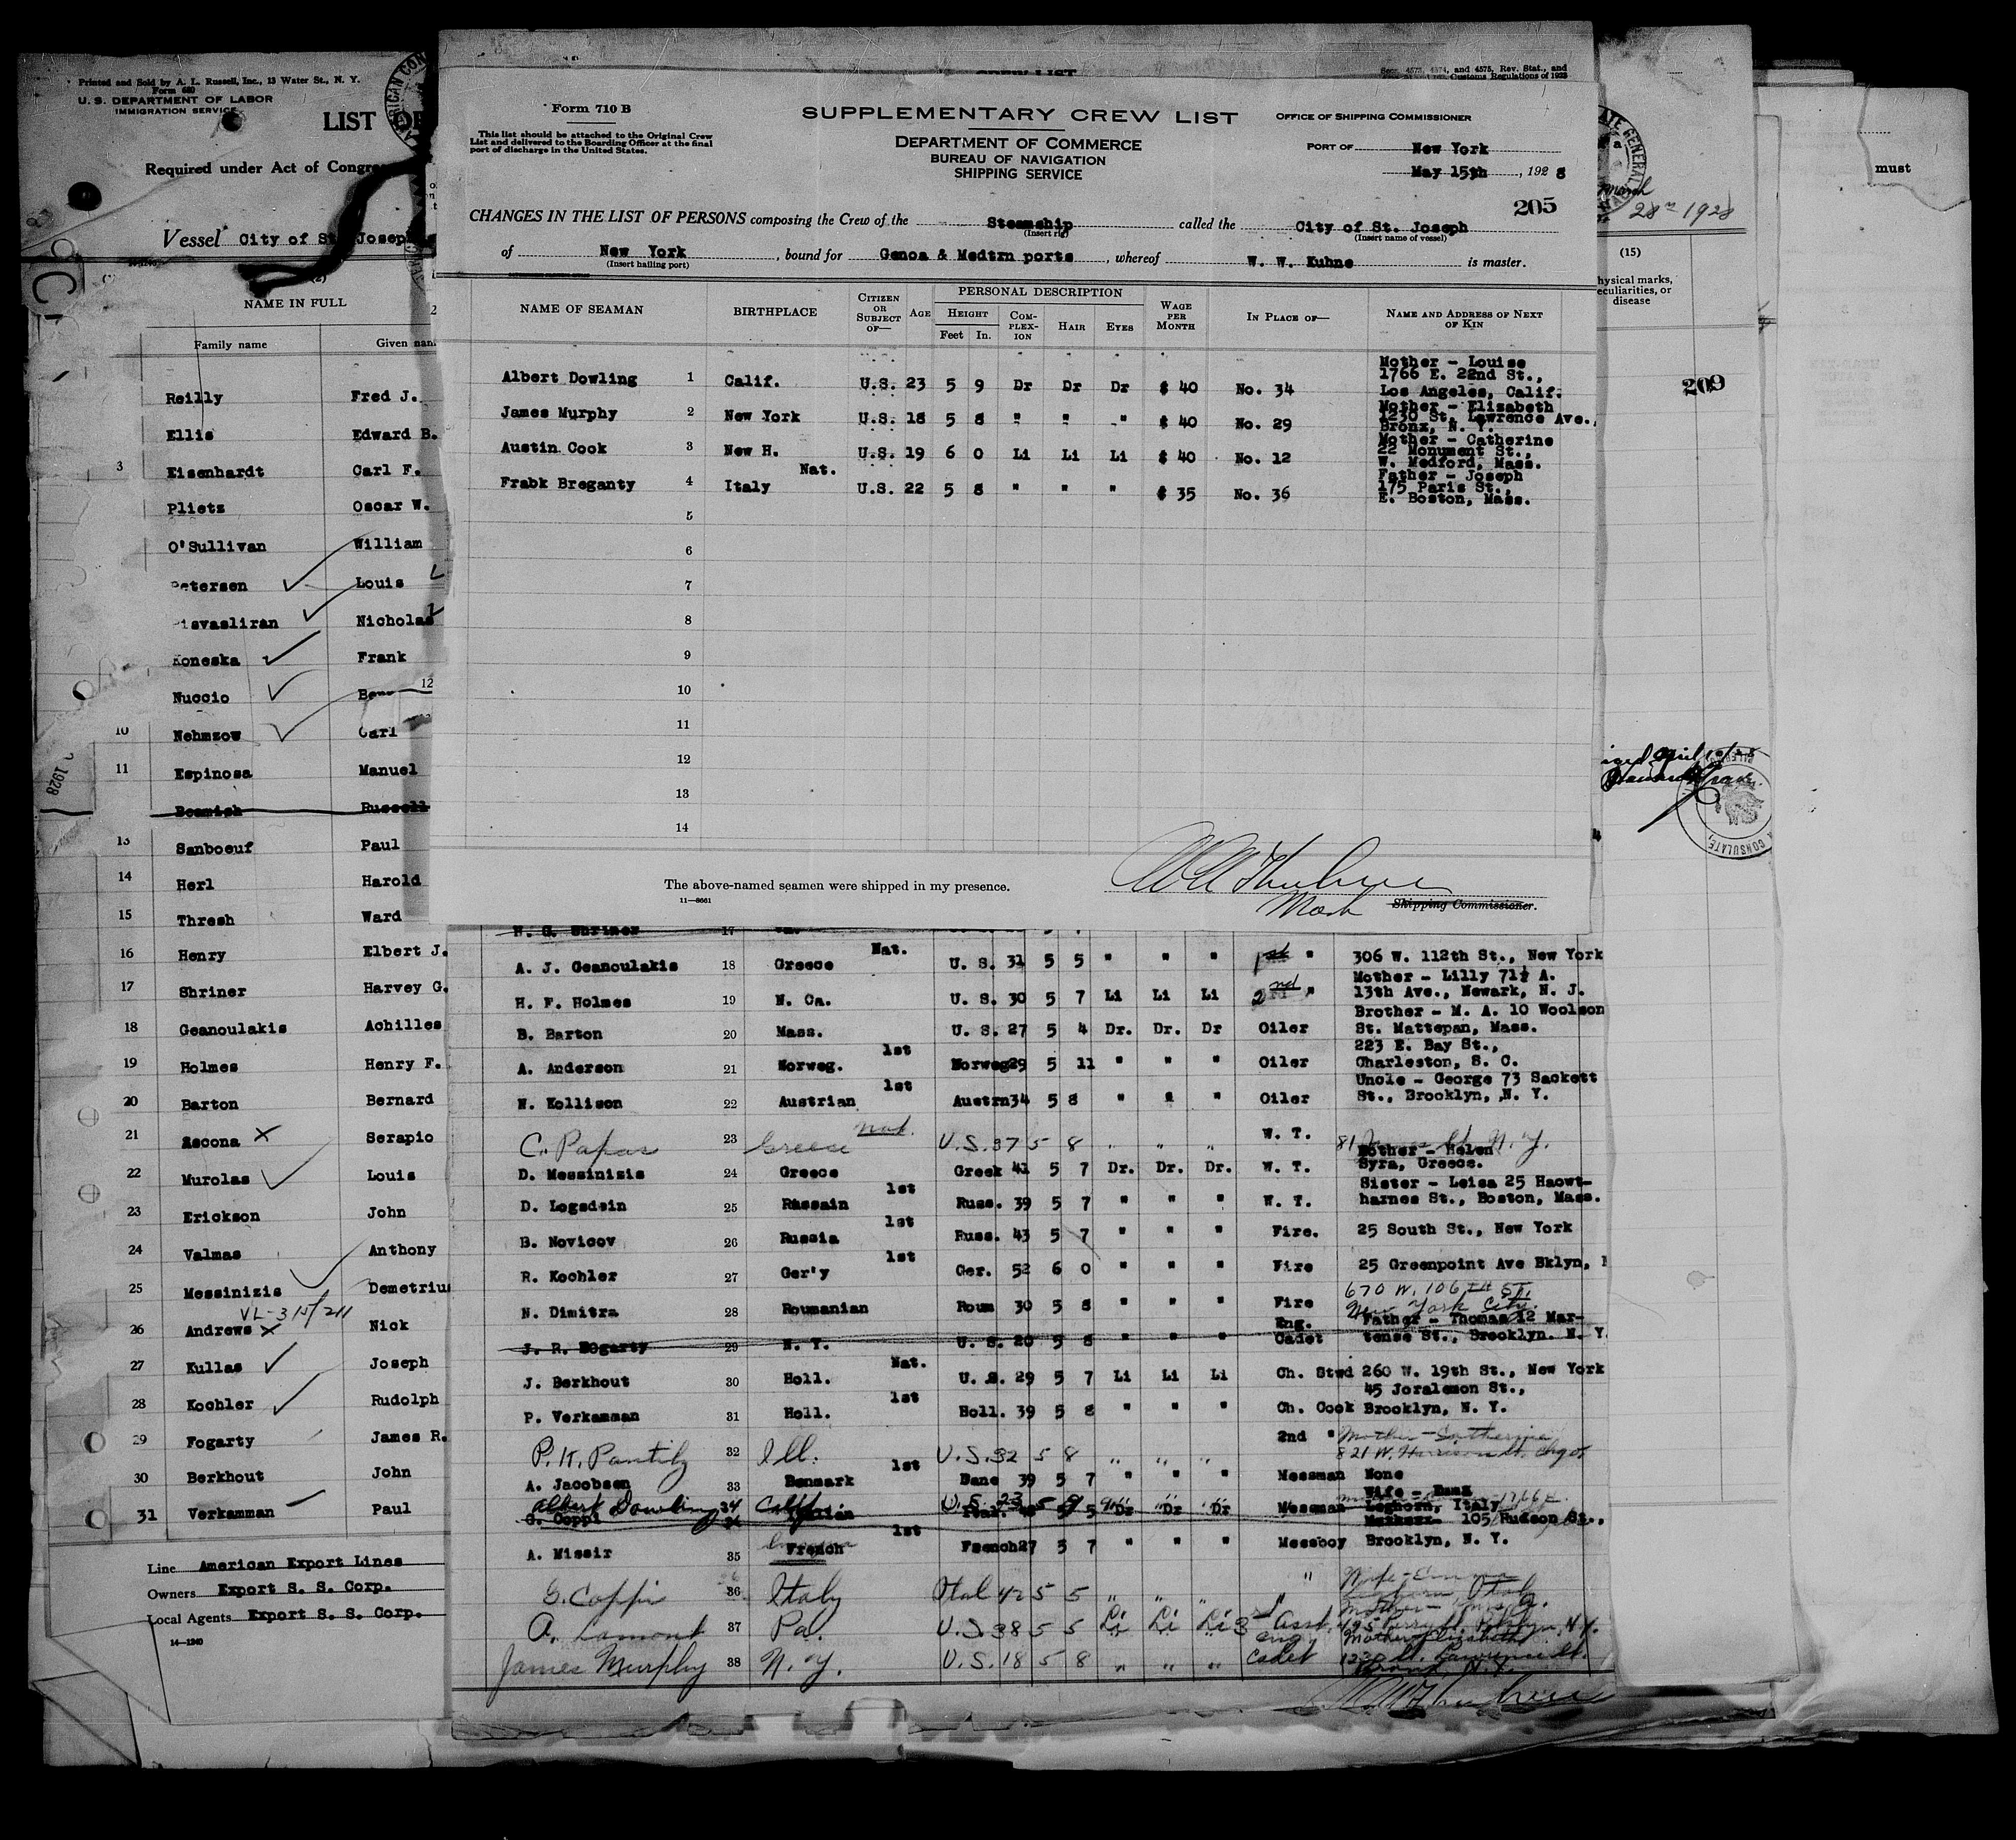 Printed and Sold by A. L. Russell, Inc., 13 Water St., N. Y.
Form 680
U. S. DEPARTMENT OF LABOR
IMMIGRATION SERVICE
LIST OF
Required under Act of Congre
Vessel City of St. Joseph
(2)
NAME IN FULL
Family name Given nam
Reilly Fred J.
Ellis Edward B.
3 Eisenhardt Carl F.
Plietz Oscar W.
O'Sullivan William
Petersen Louis
isvasliran Nicholas
Koneska Frank
Nuccio
10 Nehmzow Carl
11 Espinosa Manuel
Beamish Russell
13 Sanboeuf Paul
14 Herl Harold
15 Thresh Ward
16 Henry Elbert J.
17 Shriner Harvey G.
18 Geanoulakis Achilles
19 Holmes Henry F.
20 Barton Bernard
21 Ascona Serapio
22 Murolas Louis
23 Erickson John
24 Valmas Anthony
25 Messinizis Demetriu
26 Andrews Nick
27 Kullas Joseph
28 Kochler Rudolph
29 Fogarty James R.
30 Berkhout John
31 Verkamman Paul
Line American Export Lines
Owners Export S. S. Corp.
Local Agents Export S. S. Corp.
14—1240
1928
Form 710 B
This list should be attached to the Original Crew
List and delivered to the Boarding Officer at the final
port of discharge in the United States.
SUPPLEMENTARY CREW LIST
DEPARTMENT OF COMMERCE
BUREAU OF NAVIGATION
SHIPPING SERVICE
4575, Rev. Stat., and
Customs Regulations of 1923
OFFICE OF SHIPPING COMMISSIONER
PORT OF New York
May 15th, 1928
205
CHANGES IN THE LIST OF PERSONS composing the Crew of the Steamship called the City of St. Joseph
(Insert rig) (Insert name of vessel)
of New York, bound for Genoa & Medtrn ports, whereof W. W. Kuhne is master.
(Insert hailing port)
NAME OF SEAMAN BIRTHPLACE CITIZEN OR SUBJECT OF— AGE PERSONAL DESCRIPTION HEIGHT Feet In. COMPLEXION HAIR EYES WAGE PER MONTH IN PLACE OF— NAME AND ADDRESS OF NEXT OF KIN
Albert Dowling 1 Calif. U.S. 23 5 9 Dr Dr Dr $ 40 No. 34 Mother - Louise
1766 E. 22nd St.,
Los Angeles, Calif.
James Murphy 2 New York U.S. 18 5 8 " " " $ 40 No. 29 Mother - Elizabeth
1230 St. Lawrence Ave.,
Bronx, N. Y.
Austin Cook 3 New H. U.S. 19 6 0 Li Li Li $ 40 No. 12 Mother - Catherine
22 Monument St.,
W. Medford, Mass.
Frabk Breganty 4 Nat. Italy U.S. 22 5 8 " " " $ 35 No. 36 Father - Joseph
175 Paris St.,
E. Boston, Mass.
5
6
7
8
9
10
11
12
13
14
The above-named seamen were shipped in my presence.
11—8661
Shipping Commissioner.
H. G. Shriner 17
A. J. Geanoulakis 18 Greece Nat. U. S. 31 5 5 " " " 1st " 306 W. 112th St., New York
H. F. Holmes 19 N. Ca. U. S. 30 5 7 Li Li Li 2nd " Mother - Lilly 71½ A.
13th Ave., Newark, N. J.
B. Barton 20 Mass. U. S. 27 5 4 Dr. Dr. Dr Oiler Brother - M. A. 10 Woolson
St. Mattepan, Mass.
A. Anderson 21 Norweg. 1st Norweg29 5 11 " " " Oiler 223 E. Bay St.,
Charleston, S. C.
N. Kollison 22 Austrian 1st Austrn34 5 8 " " " Oiler Uncle - George 73 Sackett
St., Brooklyn, N. Y.
C. Papas 23 Greece Nat. U.S. 37 5 8 " " " W. T. 81 James St. N.Y.
D. Messinizis 24 Greece Greek 41 5 7 Dr. Dr. Dr. W. T. Mother - Helen
Syra, Greece.
D. Logsdein 25 Russain 1st Russ. 39 5 7 " " " W. T. Sister - Leisa 25 Haowt-
harnes St., Boston, Mass.
B. Novicov 26 Russia 1st Russ. 43 5 7 " " " Fire. 25 South St., New York
R. Kochler 27 Ger'y 1st Ger. 52 6 0 " " " Fire 25 Greenpoint Ave Bklyn,
N. Dimitra 28 Roumanian Roum 30 5 8 " " " Fire 670 W. 106th St.
New York City.
J. R. FOgarty 29 N. Y. U. S. 20 5 8 " " " Eng. Cadet Father - Thomas 12 Mar-
tense St., Brooklyn. N. Y.
J. Berkhout 30 Holl. Nat. U. S. 29 5 7 Li Li Li Ch. Stwd 260 W. 19th St., New York
P. Verkamman 31 Holl. 1st Holl. 39 5 8 " " " Ch. Cook 45 Joralemon St.,
Brooklyn, N. Y.
P. K. Pantily 32 Ill. U.S. 32 5 8 " " " 2nd " Mother - Catherine
821 W. Harrison St. Chgo.
A. Jacobsen 33 Denmark 1st Dane 39 5 7 " " " Messman None
Albert Dowling 34 Calif. U.S. 23 5 9 " " "
G. Coppi 34 Italian Ital. 5 5 Dr Dr Dr Messman Wife - Emma
Leghorn, Italy
A. Missir 35 French 1st French27 5 7 " " " Messboy 105 Hudson St.,
Brooklyn, N. Y.
G. Coppi 36 Italy Ital 42 5 5 " " " " Wife - Emma
Italy
A. Lamont 37 Pa. U.S. 38 5 5 Li Li Li 3rd Asst. Eng.
James Murphy 38 N.Y. U.S. 18 5 8 " " " Cadet Mother Elizabeth
1230 St. Lawrence
Bronx, N.Y.
28th 1928
(15)
hysical marks,
eculiarities, or
disease
209
CONSULATE
must